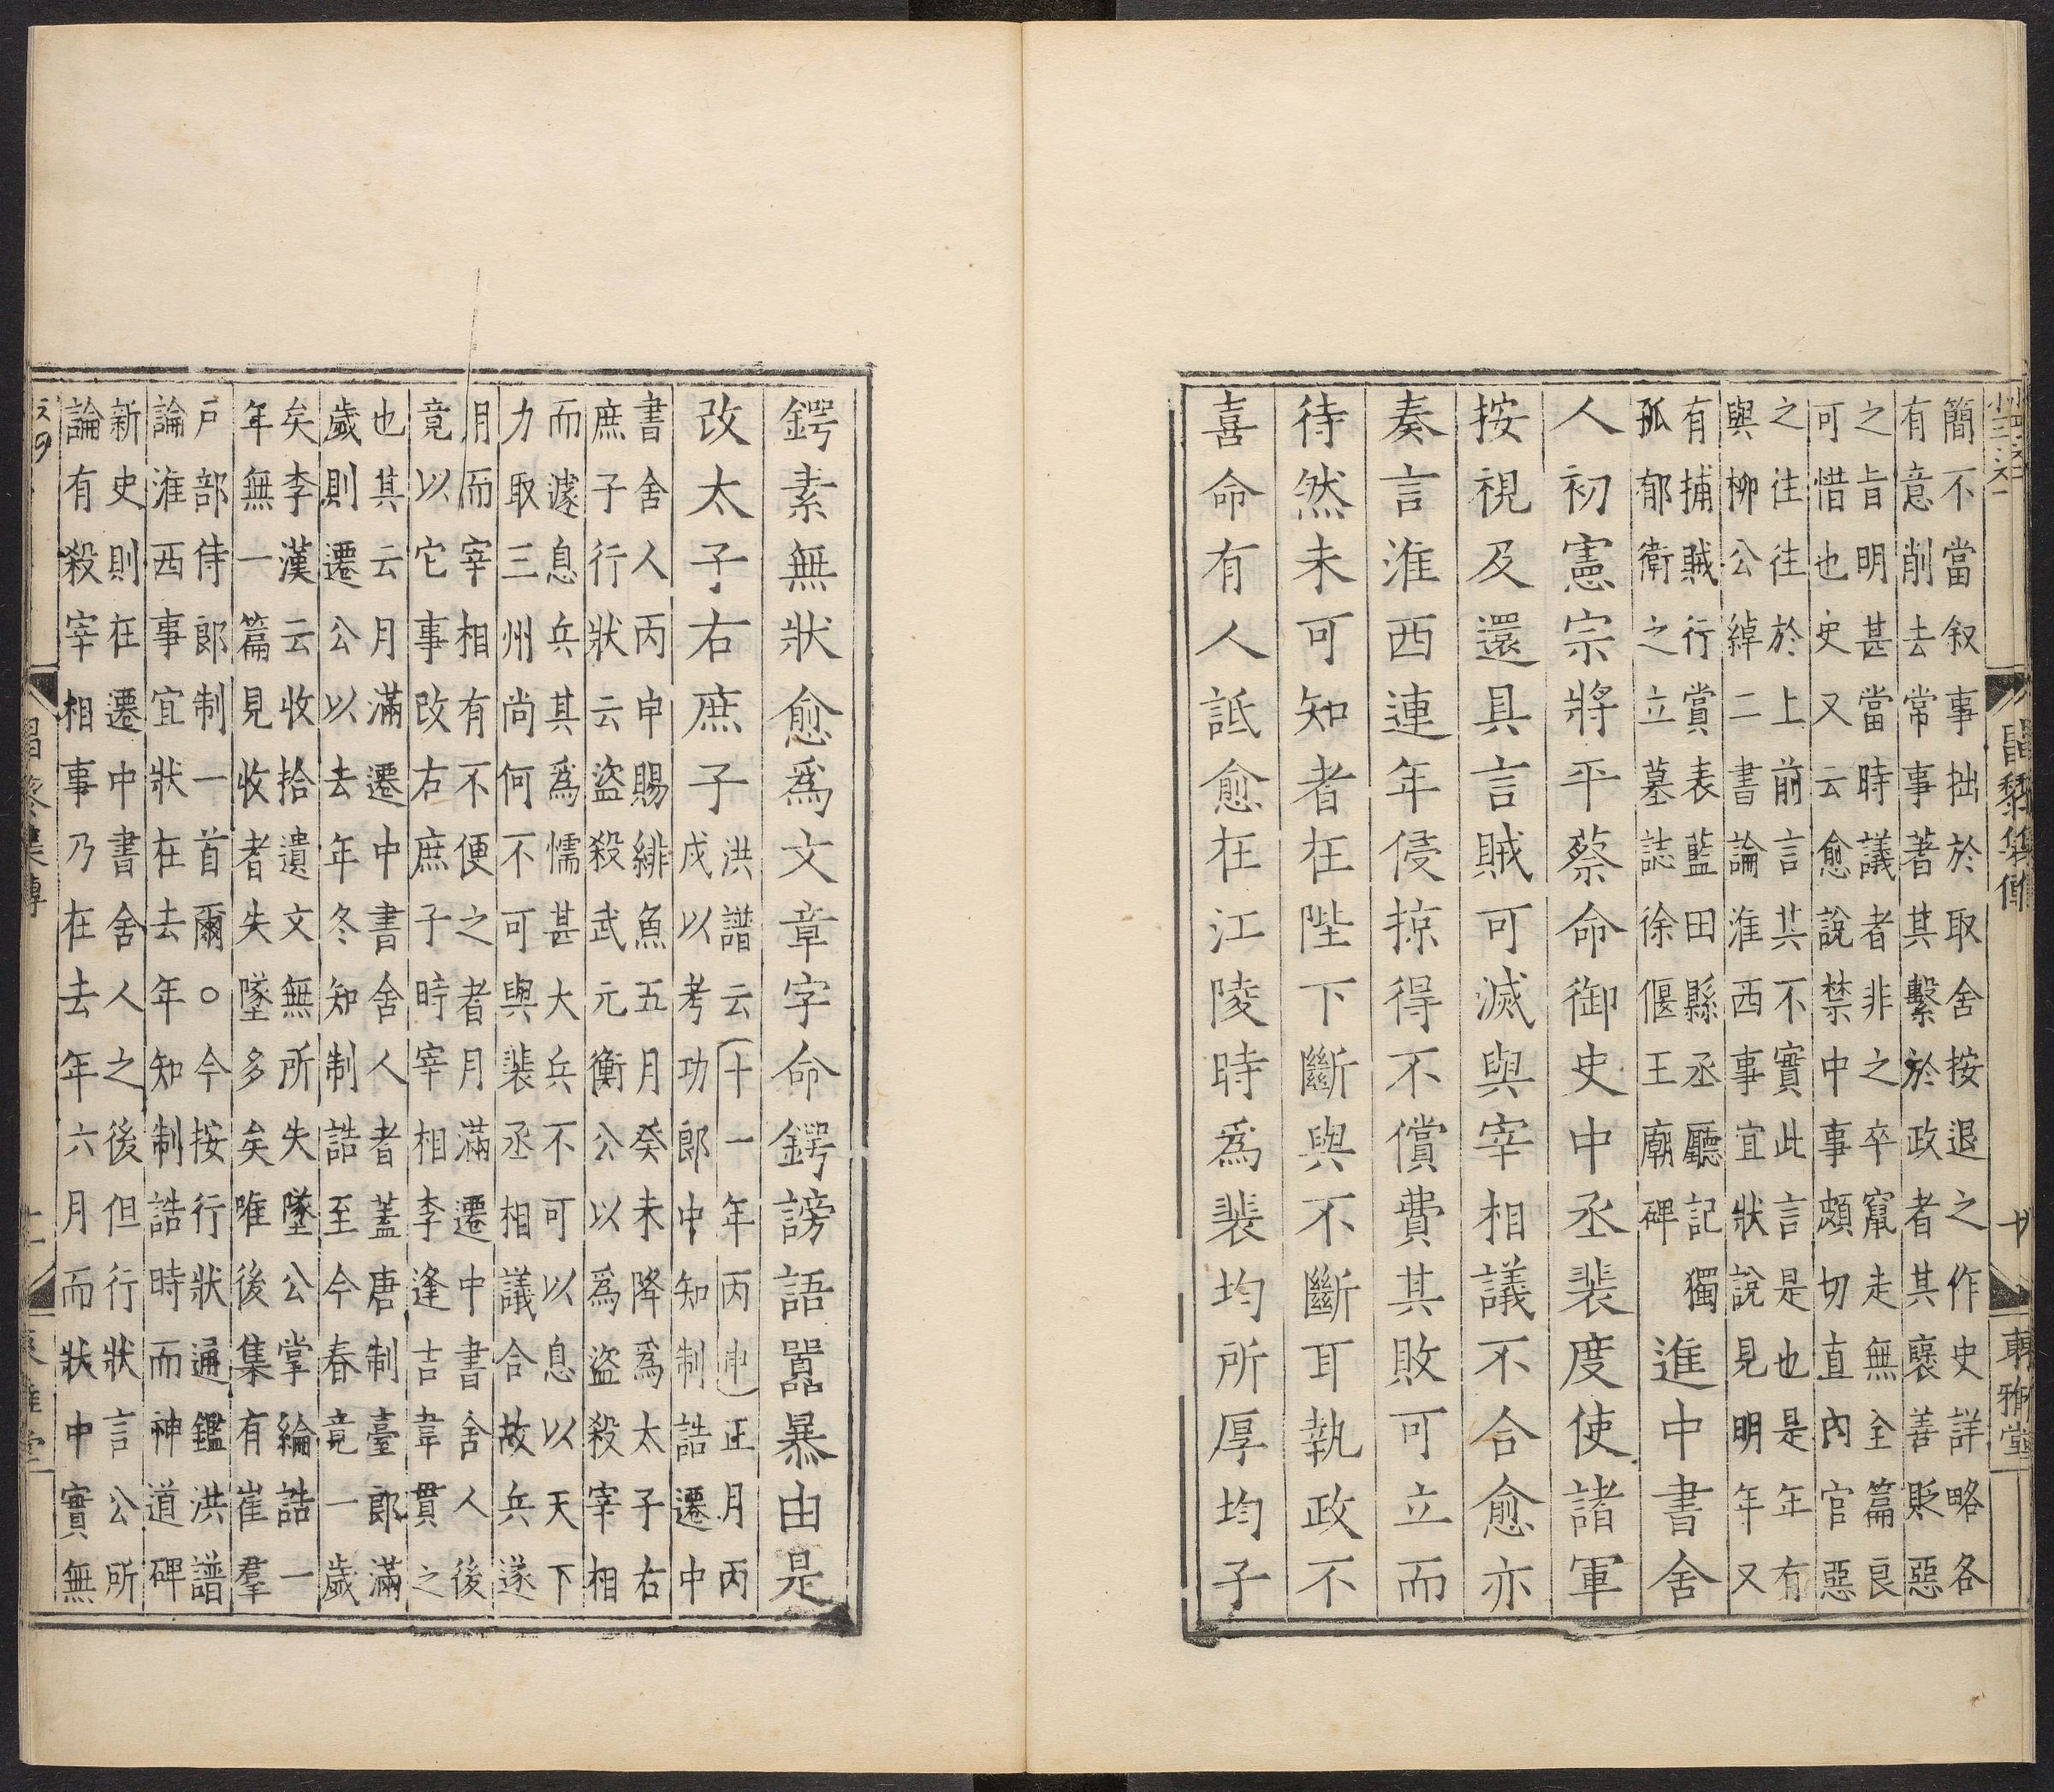 昌黎集傳
十
東雅堂
簡不當叙事拙於取舍按退之作史詳略各
有意削去常事著其繫於政者其褒善貶惡
之旨明甚當時議者非之卒竄走無全篇良
可惜也史又云愈說禁中事頗切直內官惡
之往往於上前言其不實此言是也是年有
與柳公綽二書論淮西事宜狀說見明年又
有捕賊行賞表藍田縣丞廳記獨
孤郁衛之立墓誌徐偃王廟碑
進中書舍
人初憲宗將平蔡命御史中丞裴度使諸軍
按視及還具言賊可滅與宰相議不合愈亦
奏言淮西連年侵掠得不償費其敗可立而
待然未可知者在陛下斷與不斷耳執政不
喜命有人詆愈在江陵時爲裴均所厚均子
鍔素無狀愈爲文章字命鍔謗語嚣暴由是
改太子右庶子
洪譜云(十一年丙申)正月丙
戌以考功郎中知制誥遷中
書舍人丙申賜緋魚五月癸未降爲太子右
庶子行狀云盜殺武元衡公以爲盜殺宰相
而遽息兵其爲懦甚大兵不可以息以天下
力取三州尚何不可與裴丞相議合故兵遂
用而宰相有不便之者月滿遷中書舍人後
竟以它事改右庶子時宰相李逢吉韋貫之
也其云月滿遷中書舍人者蓋唐制臺郎滿
歲則遷公以去年冬知制誥至今春竟一歲
矣李漢云收拾遺文無所失墜公掌綸誥一
年無一篇見收者失墜多矣唯後集有崔羣
戶部侍郎制一首爾○今按行狀通鑑洪譜
論淮西事宜狀在去年知制誥時而神道碑
新史則在遷中書舍人之後但行狀言公所
論有殺宰相事乃在去年六月而狀中實無
昌黎集傳
十一
東雅堂